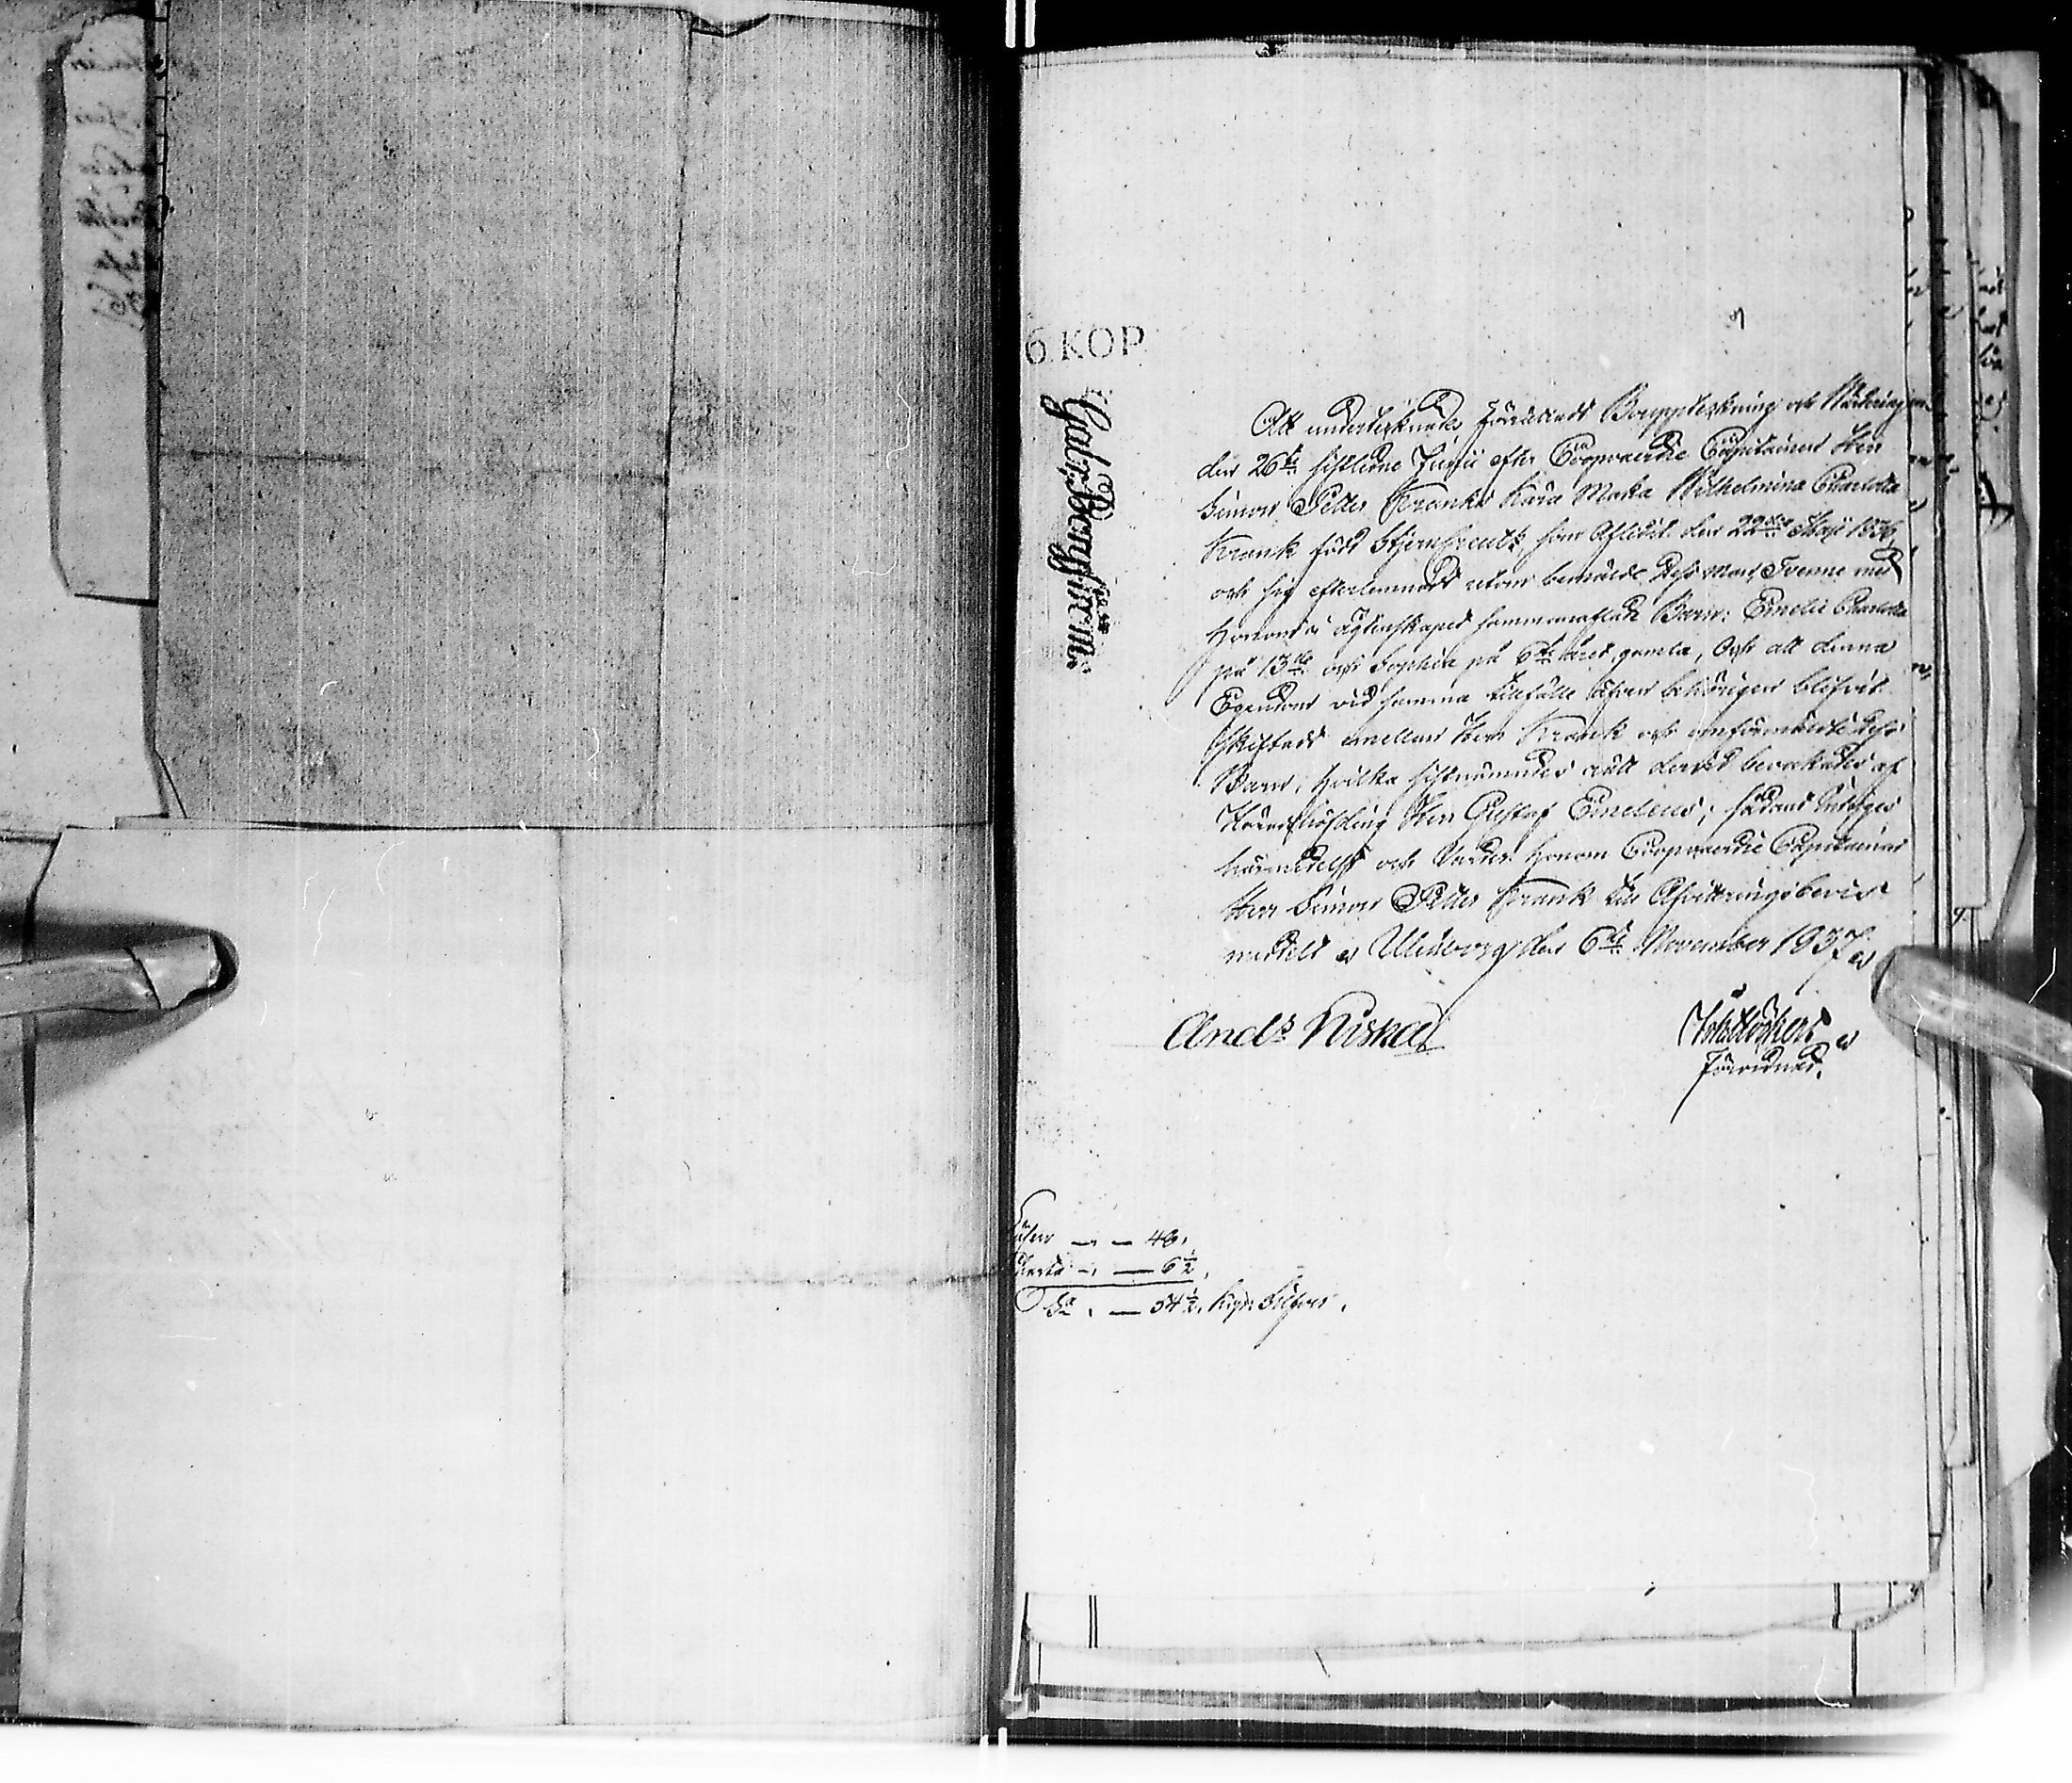 6 KOP
Att undertecknade förrättadt Boupptekning och Värdering
den 26te sistledne Junii efter Coopvaerdie Capitainen Herr
Simon Petter Kranks Kära Maka Wilhelmina Charlotta
Krank född Stjerncreutz, som Aflidit den 22dra Maji 1836,
och sig efterlemnadt utom bemälde Dess Man, Tvenne med
honom i ägtenskapet sammanaflade Barn: Emelie Charlotta
på 13de och Sophia på 6te året gamla, Och att denna
Egendom vid samma tillfälle äfven behörigen blifvit
skiftadt emellan Herr Krank och omförmälte dess
Barn, hvilka sistnämnder rätt dervid bevakades af
Häradshöfding Herr Gustaf Emeleus; sådant intygas
härmedelst och varder honom Coopvaerdie Capitainen
Herr Simon Petter Krank till Afvittringsbevis
meddelt Uleåborg den 6te November 1837
Ands Niska
Förordnad.
48.
6 1/2
Sa. — 54 1/2. Kop. Silfver.